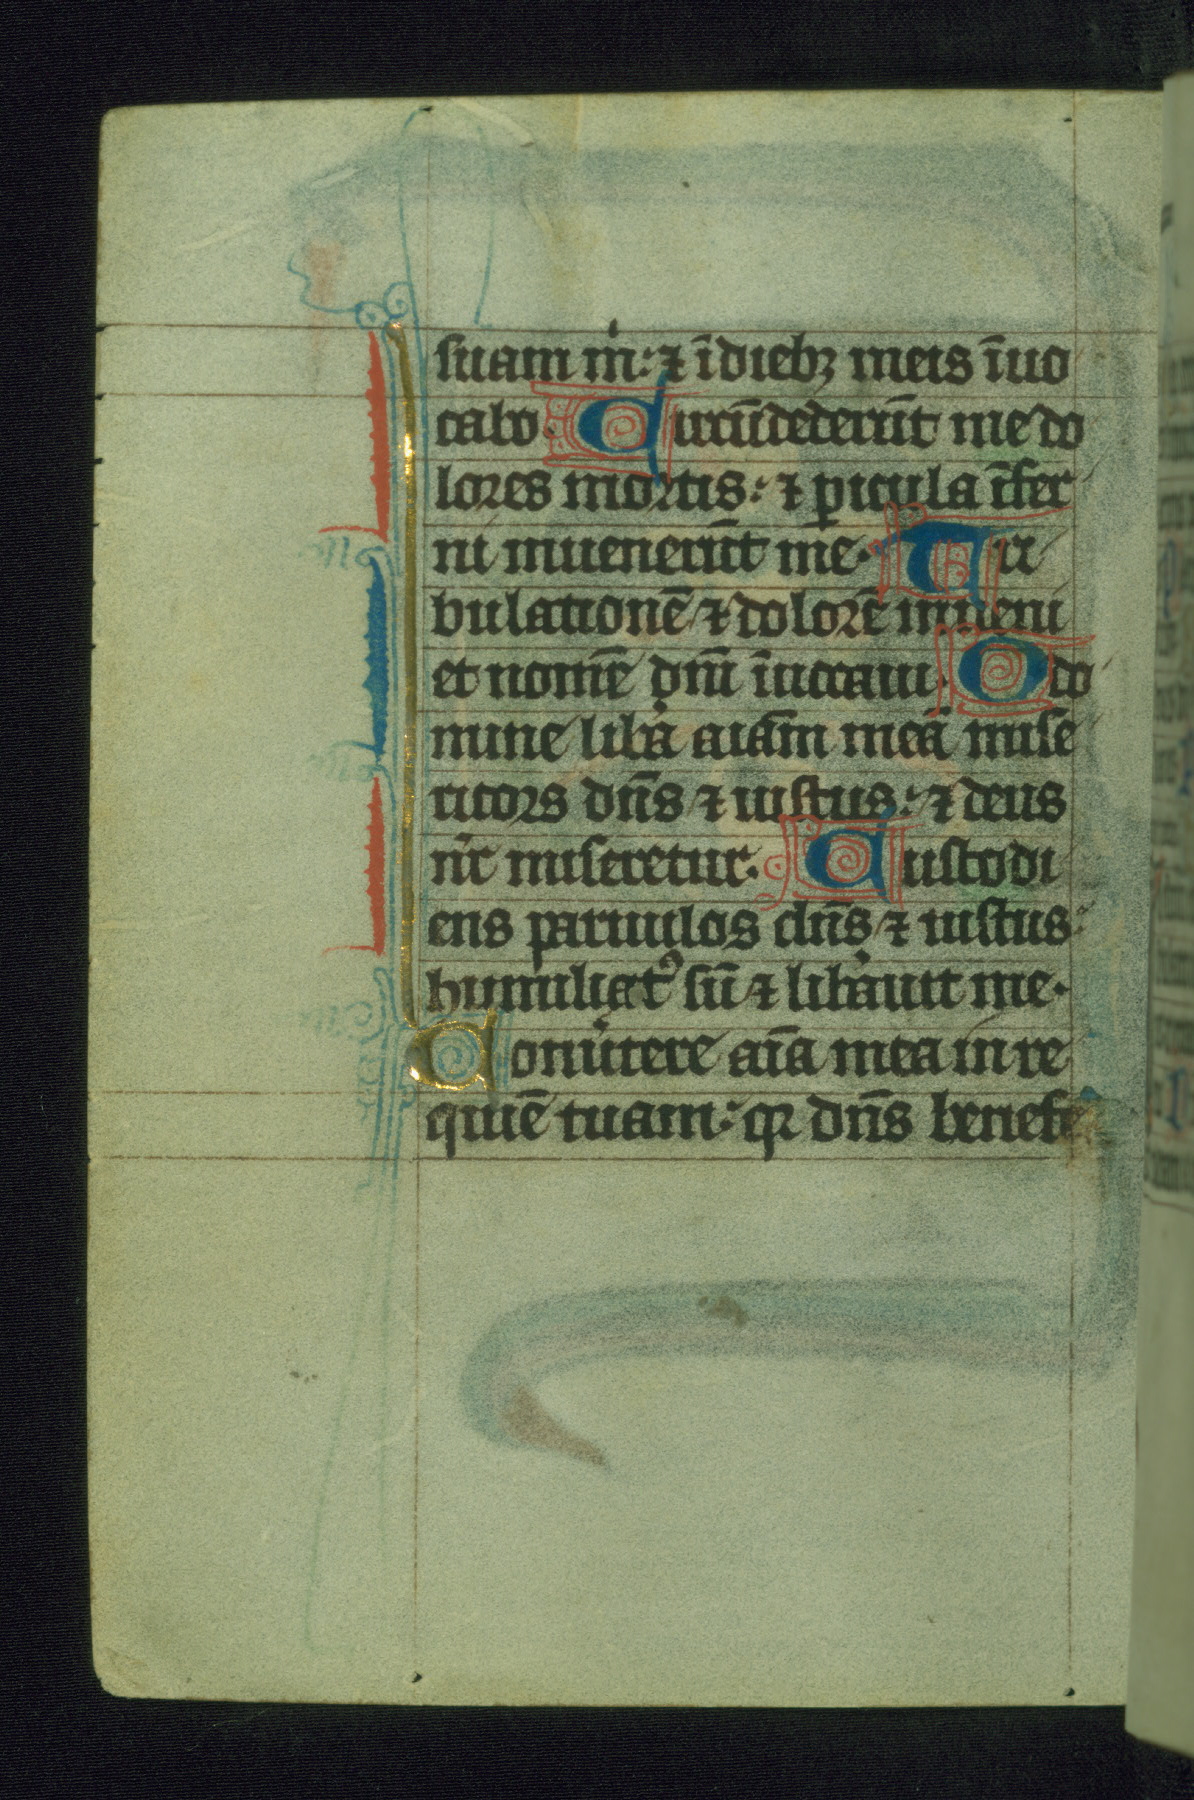 suam m̄: ⁊ ī diebꝫ meis īuo
cabo. Circūdederūt me do
lores mortis: ⁊ ꝑicula īfer
ni inuenerūt me. Tri
bulationē ⁊ dolorē inueni
et nomē dn̄i īuocaui. O do
mine liba aīam meā mise
ricors dn̄s ⁊ iustus: ⁊ deus
nr̄ miseretur. Custodi
ens paruulos dn̄s ⁊ iustus:
humiliatꝰ sū ⁊ libauit me.
Conutere aīa mea in re
quiē tuam: qꝛ dn̄s benefe